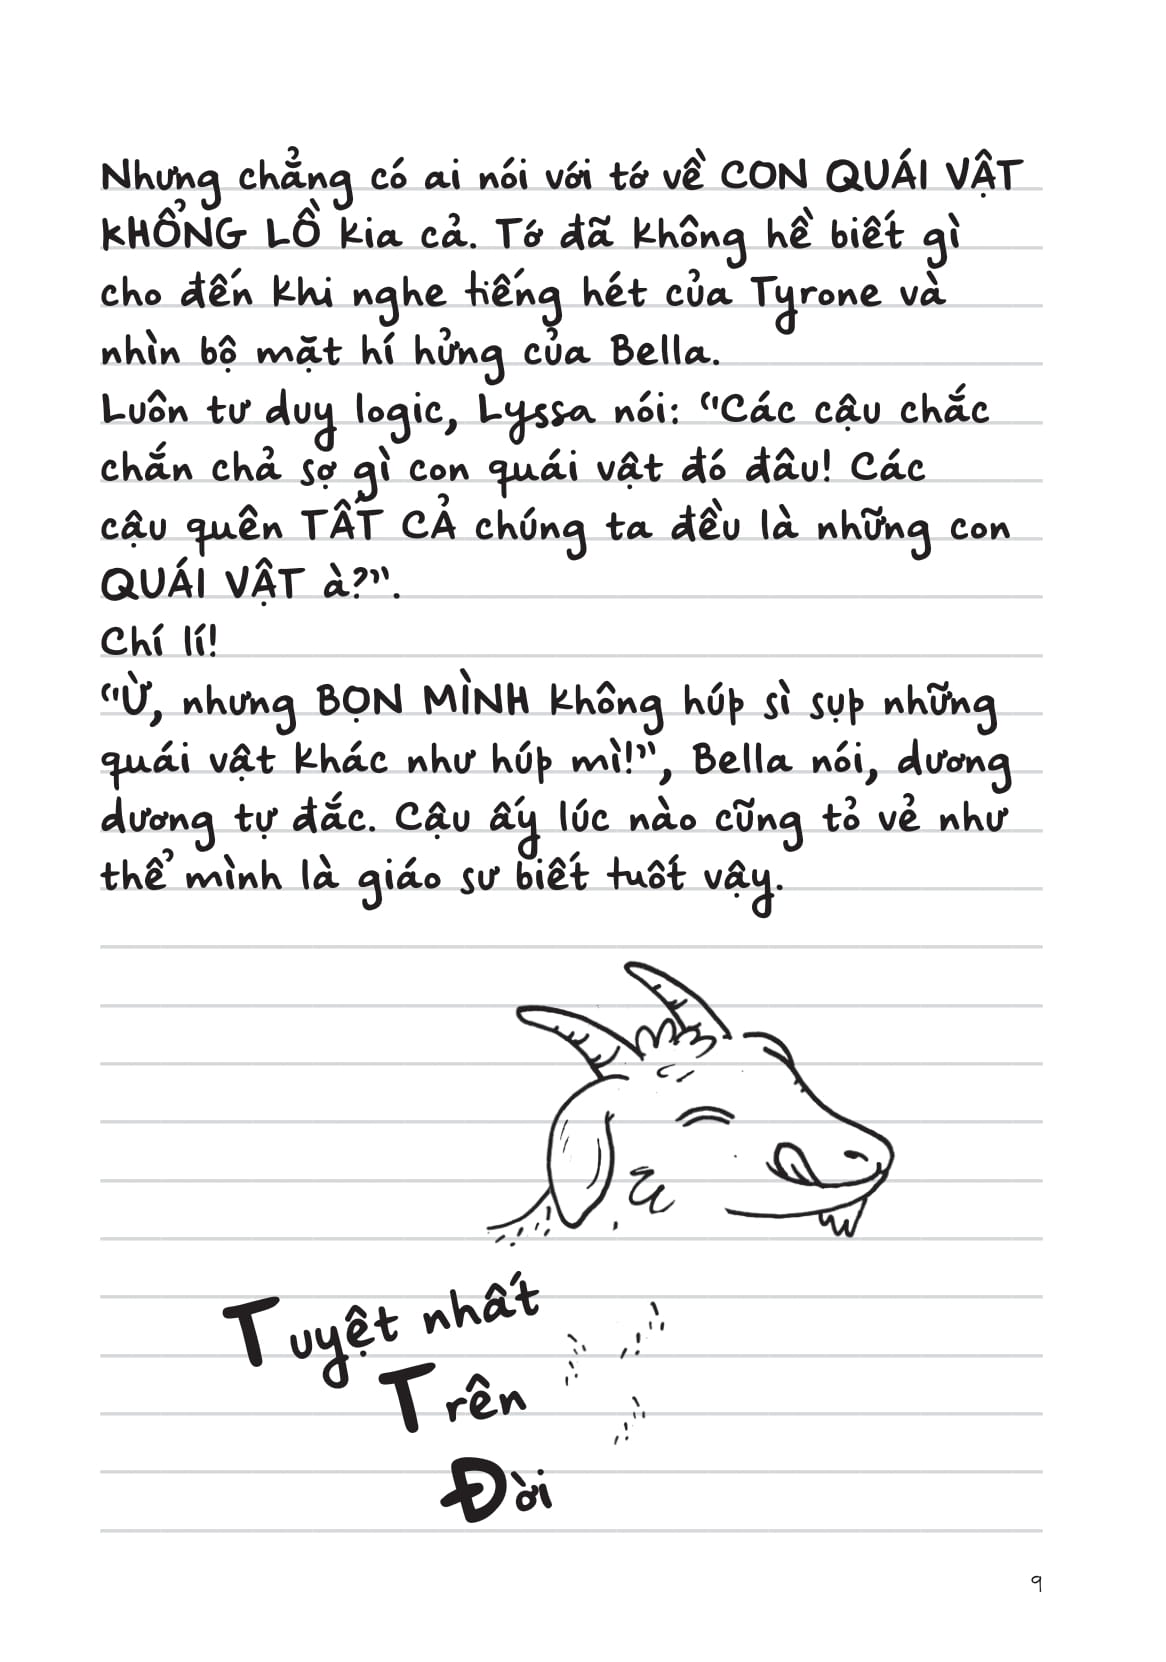 Nhưng chẳng có ai nói với tớ về CON QUÁI VẬT
KHỔNG LỒ kia cả. Tớ đã không hề biết gì
cho đến khi nghe tiếng hét của Tyrone và
nhìn bộ mặt hí hửng của Bella.
Luôn tư duy logic, Lyssa nói: "Các cậu chắc
chắn chả sợ gì con quái vật đó đâu! Các
cậu quên TẤT CẢ chúng ta đều là những con
QUÁI VẬT à?".
Chí lí!
"Ừ, nhưng BỌN MÌNH không húp sì sụp những
quái vật khác như húp mì!", Bella nói, dương
dương tự đắc. Cậu ấy lúc nào cũng tỏ vẻ như
thể mình là giáo sư biết tuốt vậy.
Tuyệt nhất
Trên
Đời
9